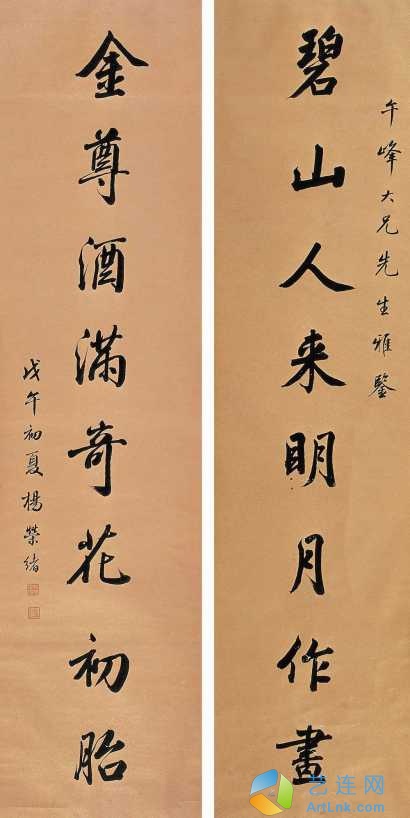 午峰大兄先生雅鑒
碧山人来明月作畫
金尊酒滿奇花初胎
戊午初夏楊榮緒
艺连网
ArtLnk.com